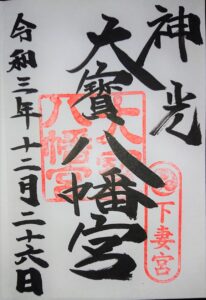 神光
大寳八幡宮
下妻宮
八幡宮
令和三年十二月二十六日